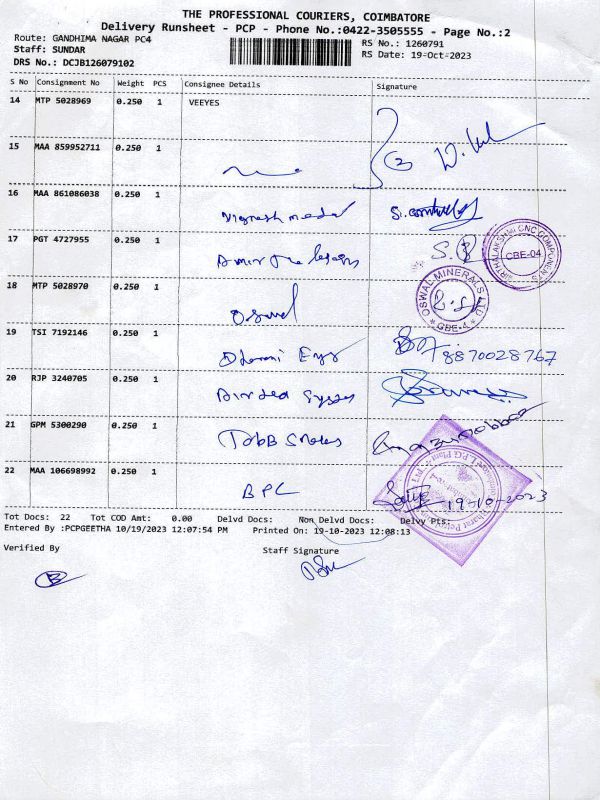 THE PROFESSIONAL COURIERS, COIMBATORE
Delivery Runsheet - PCP - Phone No.:0422-3505555 - Page No.:2
Route: GANDHIMA NAGAR PC4 RS No.: 1260791
Staff: SUNDAR RS Date: 19-Oct-2023
DRS No.: DCJB126079102
S No Consignment No Weight PCS Consignee Details Signature
14 MTP 5028969 0.250 1 VEEYES
15 MAA 859952711 0.250 1
16 MAA 861086038 0.250 1
17 PGT 4727955 0.250 1 S.B
CNC COMPONENTS CBE-04
18 MTP 5028970 0.250 1
OSWAL MINERALS LTD CBE-4
19 TSI 7192146 0.250 1 8870028767
20 RJP 3240705 0.250 1
21 GPM 5300290 0.250 1
22 MAA 106698992 0.250 1 BPC 19-10-2023
Tot Docs: 22 Tot COD Amt: 0.00 Delvd Docs: Non Delvd Docs: Delvy Pts:
Entered By :PCPGEETHA 10/19/2023 12:07:54 PM Printed On: 19-10-2023 12:08:13
Verified By Staff Signature